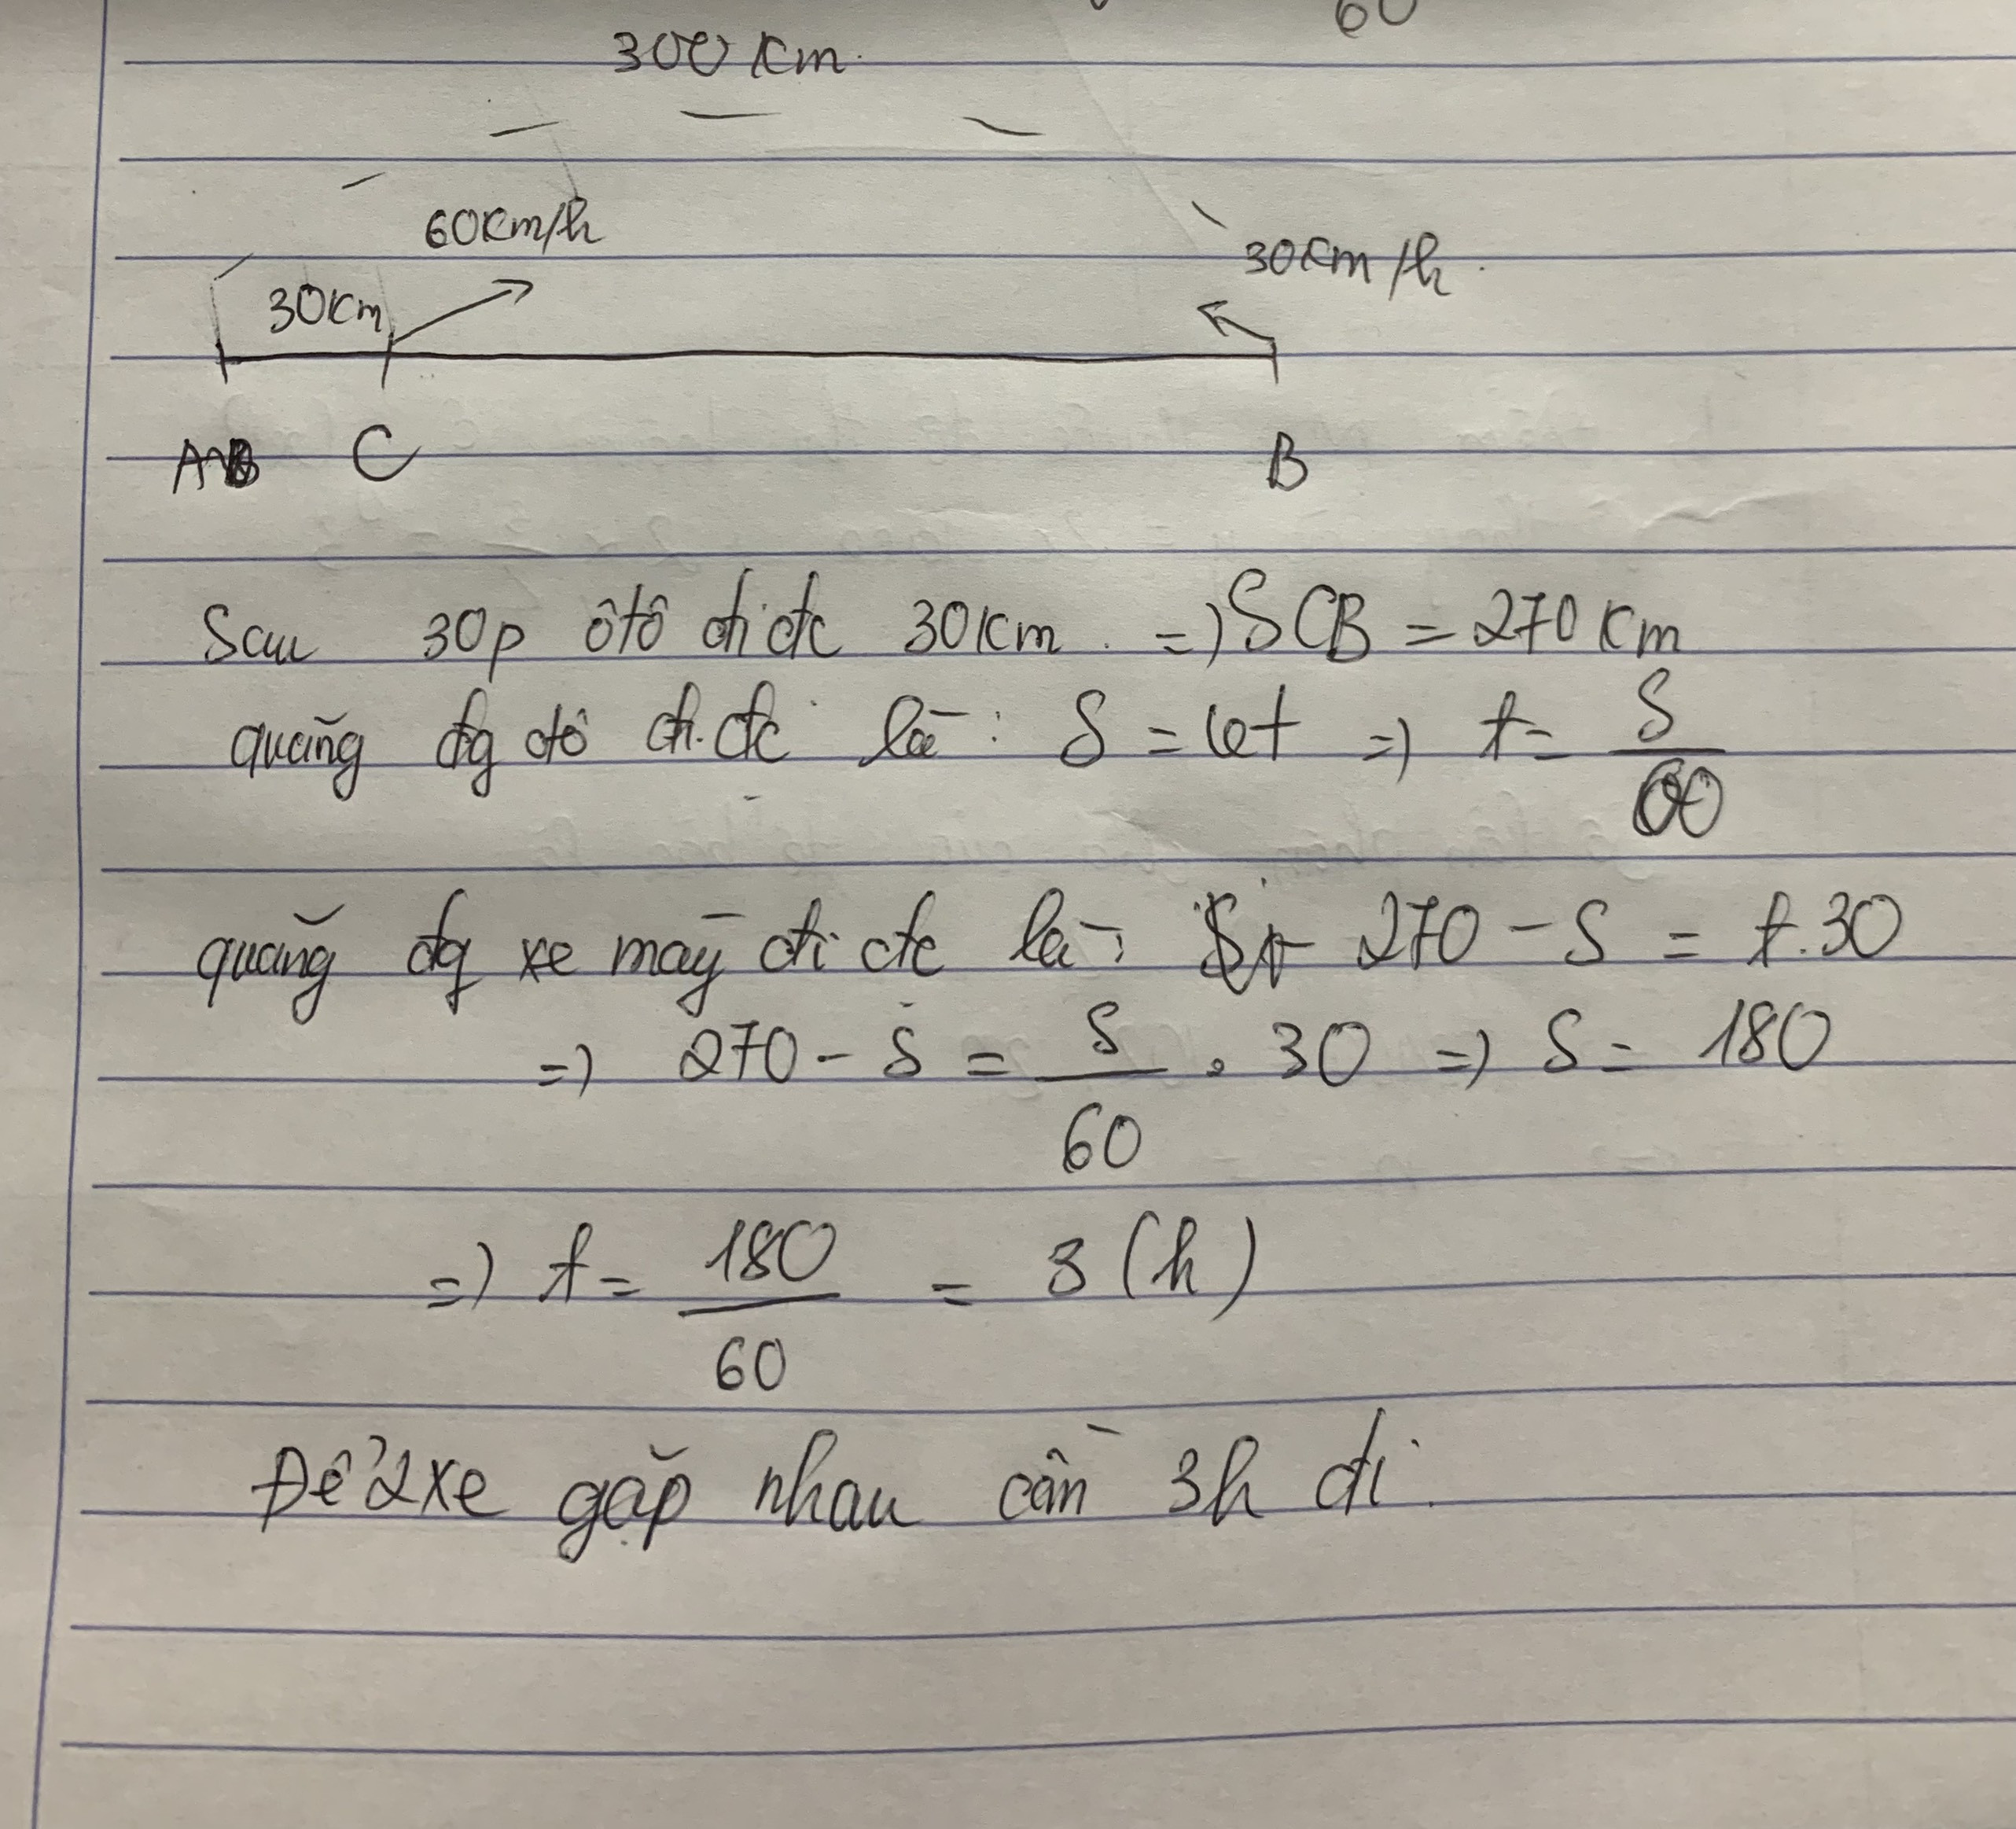 60
300 Km
60Km/h
30Km/h
30Km
A C B
Sau 30p ôtô đi đc 30Km. => SCB = 270 Km
quãng đg ôtô đi đc là: S = v.t => t = S/60
quãng đg xe máy đi đc là: 270 - S = t.30
=> 270 - S = S/60 . 30 => S = 180
=> t = 180/60 = 3 (h)
Để 2 xe gặp nhau cần 3h đi.